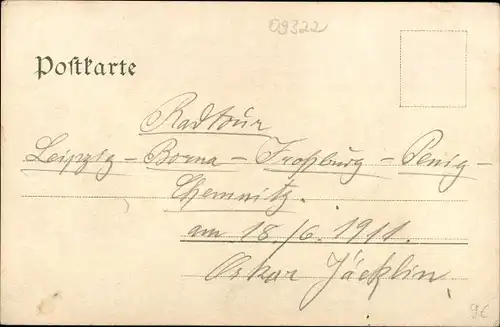 09322
Postkarte
Radtour
Leipzig - Borna - Frohburg - Penig -
Chemnitz.
am 18./6. 1911.
Oskar Jäcklin
9€